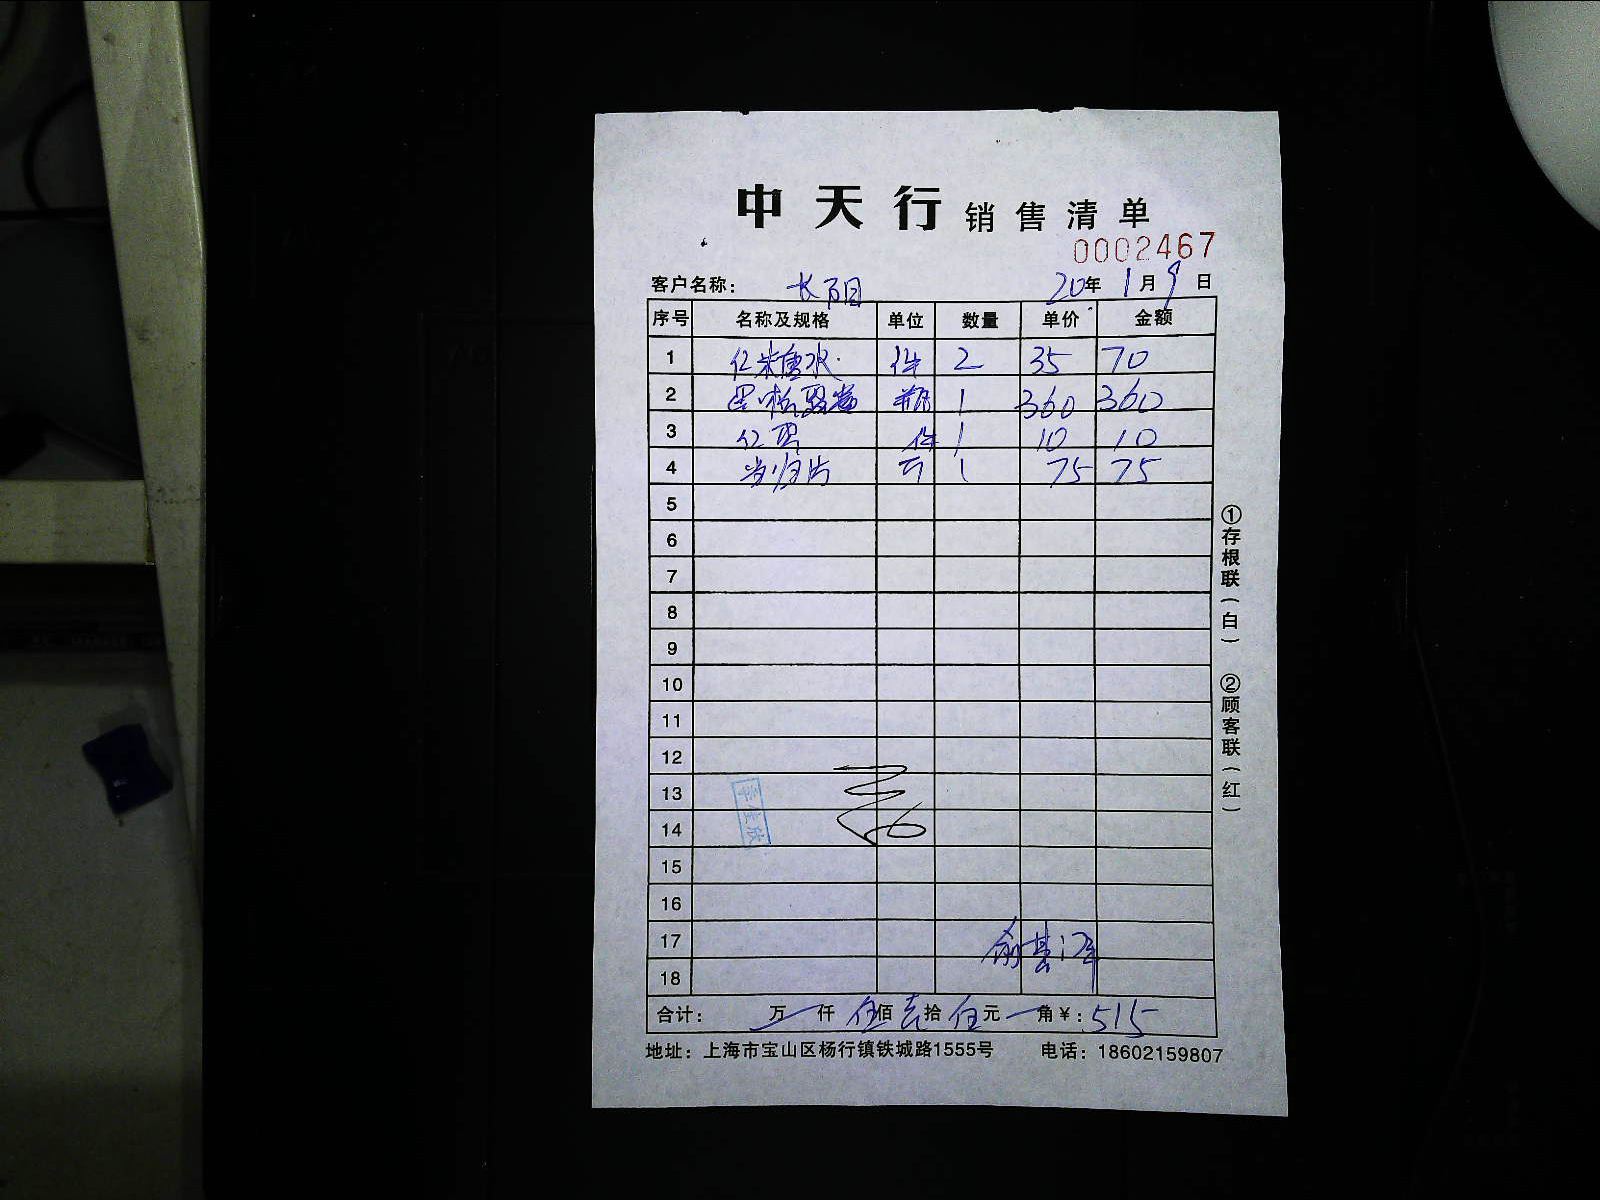 中天行 销售清单
0002467
客户名称： 长阳 20年 1月 9日
序号 名称及规格 单位 数量 单价 金额
1 件 2 35 70
2 瓶 1 360 360
3 件 1 10 10
4 当归片 1 75 75
5
6
7
8
9
10
11
12
13
14
15
16
17
18
合计： 万 仟 伍佰 壹拾 伍元 角 ¥：515
地址：上海市宝山区杨行镇铁城路1555号 电话：18602159807
①存根联（白） ②顾客联（红）